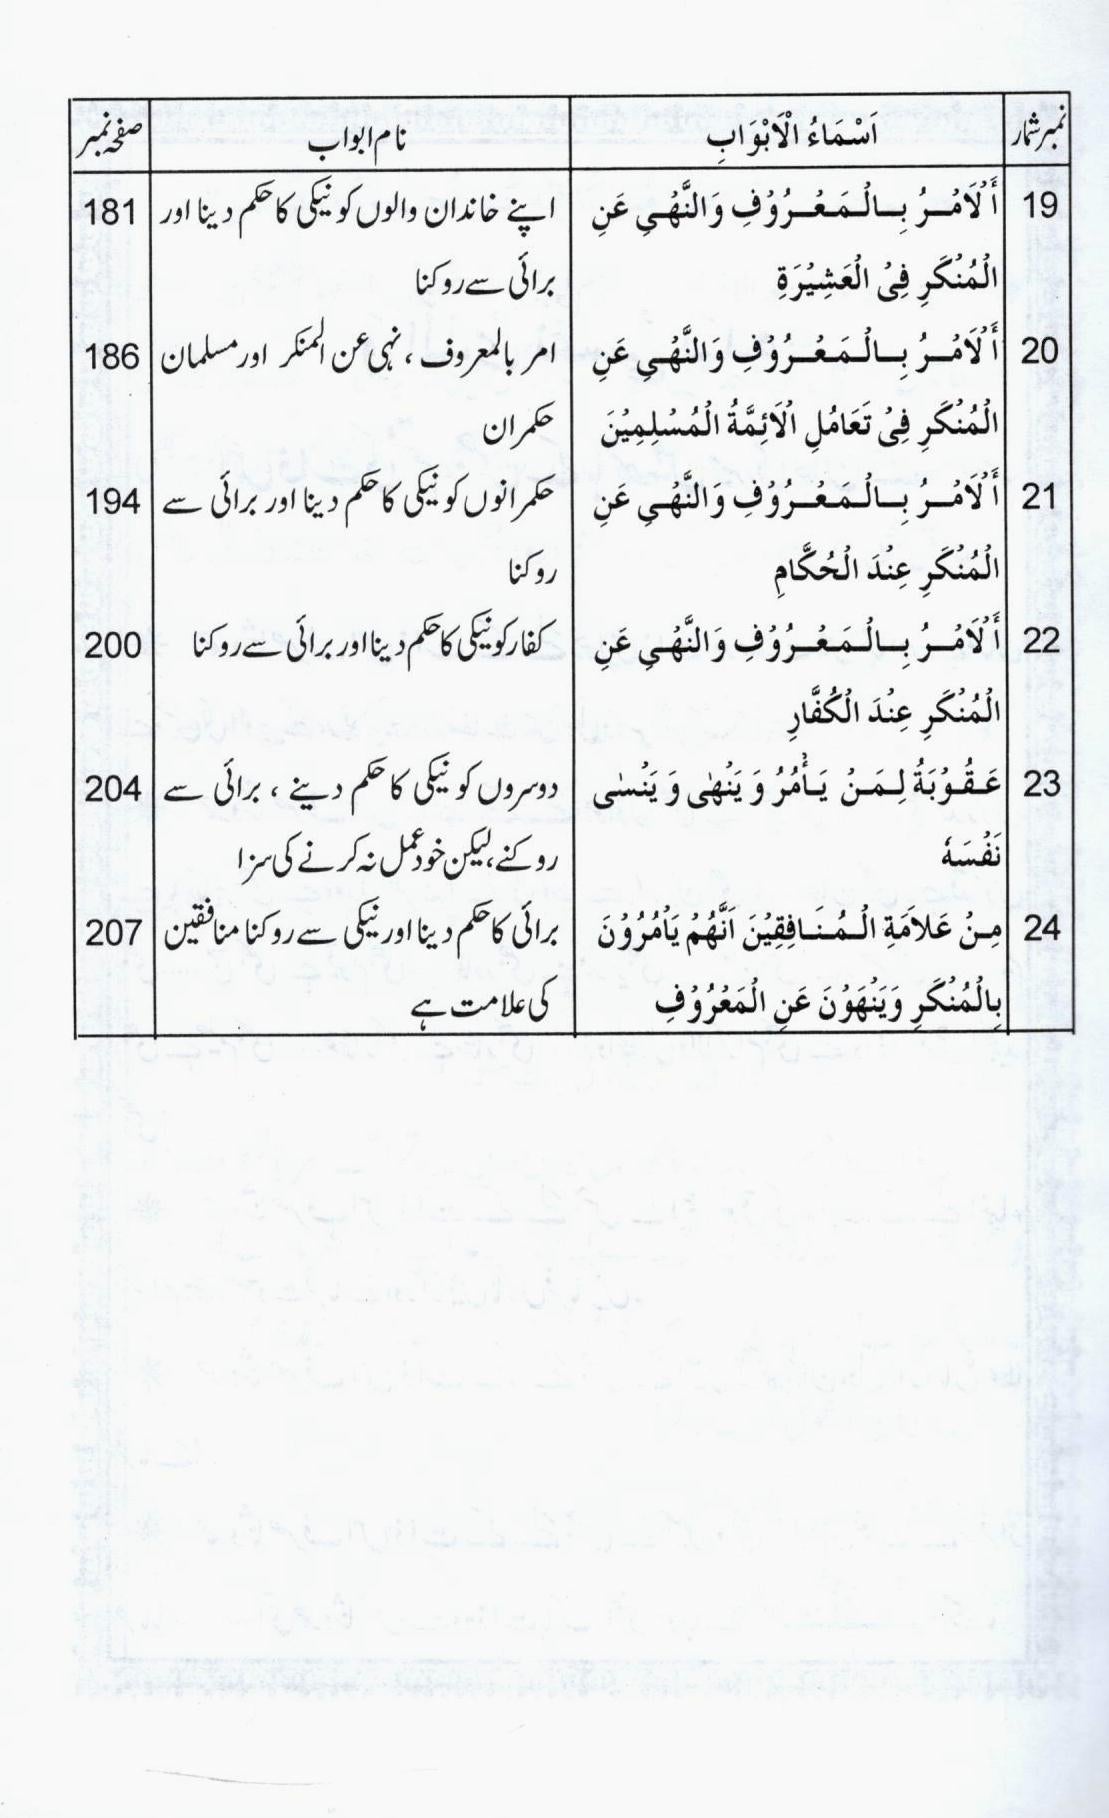 نمبر شمار اَسْمَاءُ الْاَبْوَابِ نام ابواب صفحہ نمبر
19 أَلْاَمْرُ بِالْمَعْرُوْفِ وَالنَّهْیِ عَنِ اپنے خاندان والوں کو نیکی کا حکم دینا اور 181
الْمُنْكَرِ فِی الْعَشِيْرَةِ برائی سے روکنا
20 أَلْاَمْرُ بِالْمَعْرُوْفِ وَالنَّهْیِ عَنِ امر بالمعروف ، نہی عن المنکر اور مسلمان 186
الْمُنْكَرِ فِیْ تَعَامُلِ الْاَئِمَّةُ الْمُسْلِمِيْنَ حکمران
21 أَلْاَمْرُ بِالْمَعْرُوْفِ وَالنَّهْیِ عَنِ حکمرانوں کو نیکی کا حکم دینا اور برائی سے 194
الْمُنْكَرِ عِنْدَ الْحُكَّامِ روکنا
22 أَلْاَمْرُ بِالْمَعْرُوْفِ وَالنَّهْیِ عَنِ کفار کو نیکی کا حکم دینا اور برائی سے روکنا 200
الْمُنْكَرِ عِنْدَ الْكُفَّارِ
23 عَقُوْبَةُ لِمَنْ يَأْمُرُ وَ يَنْهٰى وَ يَنْسٰى دوسروں کو نیکی کا حکم دینے ، برائی سے 204
نَفْسَهٗ روکنے، لیکن خود عمل نہ کرنے کی سزا
24 مِنْ عَلاَمَةِ الْمُنَافِقِيْنَ اَنَّهُمْ يَاْمُرُوْنَ برائی کا حکم دینا اور نیکی سے روکنا منافقین 207
بِالْمُنْكَرِ وَيَنْهَوْنَ عَنِ الْمَعْرُوْفِ کی علامت ہے